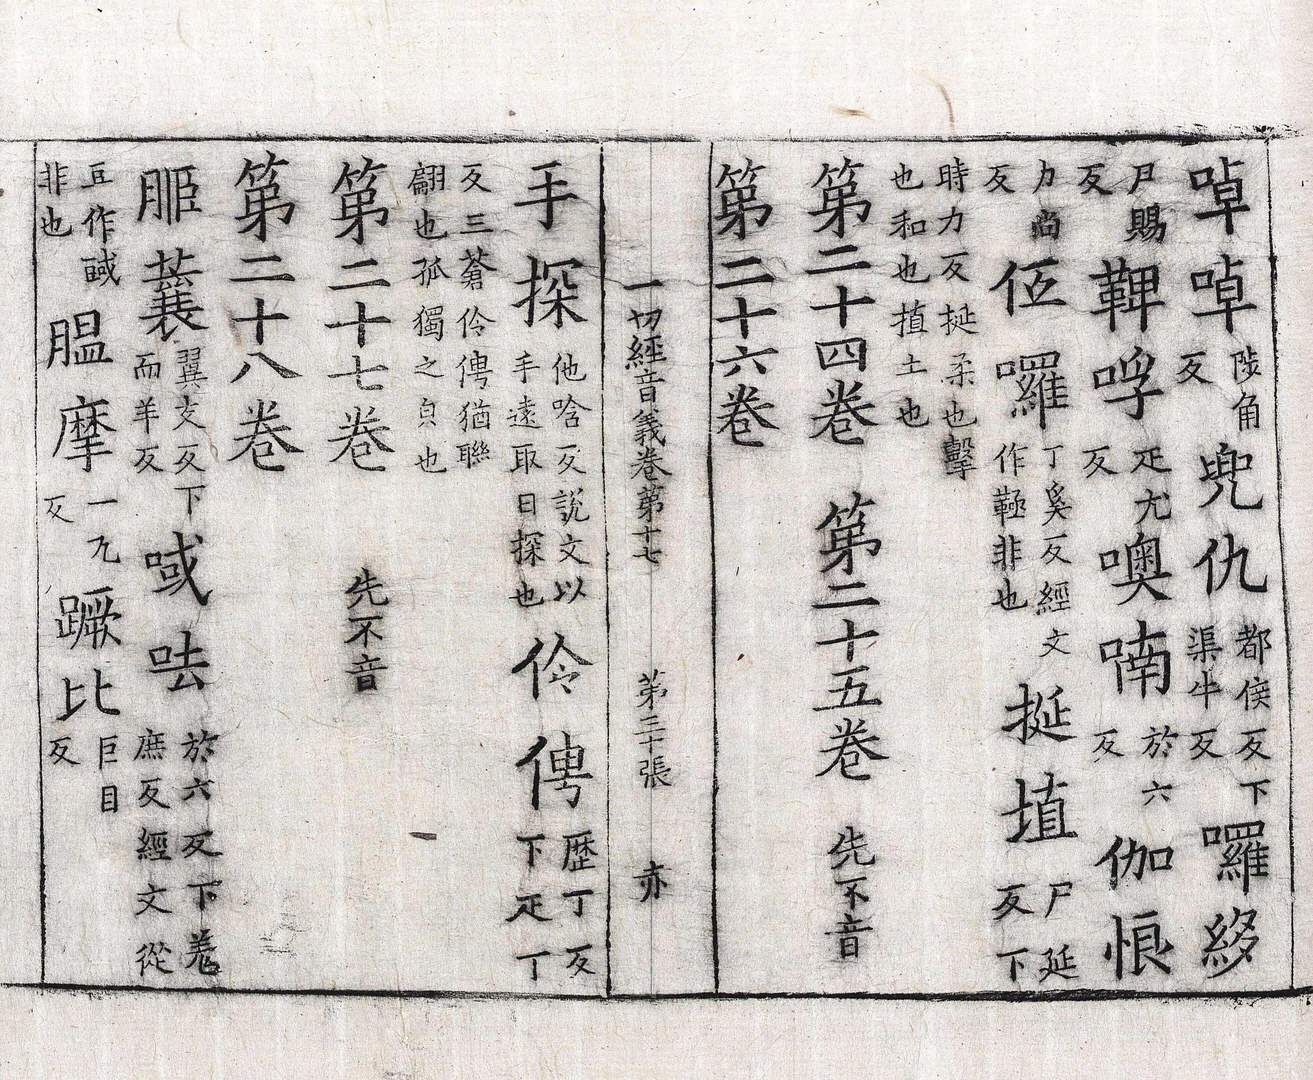 啅啅陟角反兜仇都侯反下渠牛反囉
尸賜反鞞哹疋尤反噢喃於六反伽悢
力尚反仾囉丁奚反經文作非也挻埴尸延反下
時力反挻柔也擊也和也埴土也
第二十四卷 第二十五卷 先不音
第二十六卷
一切經音義卷第十七 第三十張 亦
手探他唅反說文以手遠取曰探也伶俜歷丁反下疋丁
反三蒼伶俜猶聯翩也孤獨之皃也
第二十七卷 先不音
第二十八卷
蘘翼支反下而羊反㖪呿於六反下羌庶反經文從
豆作非也膃摩一兀反蹶比巨目反